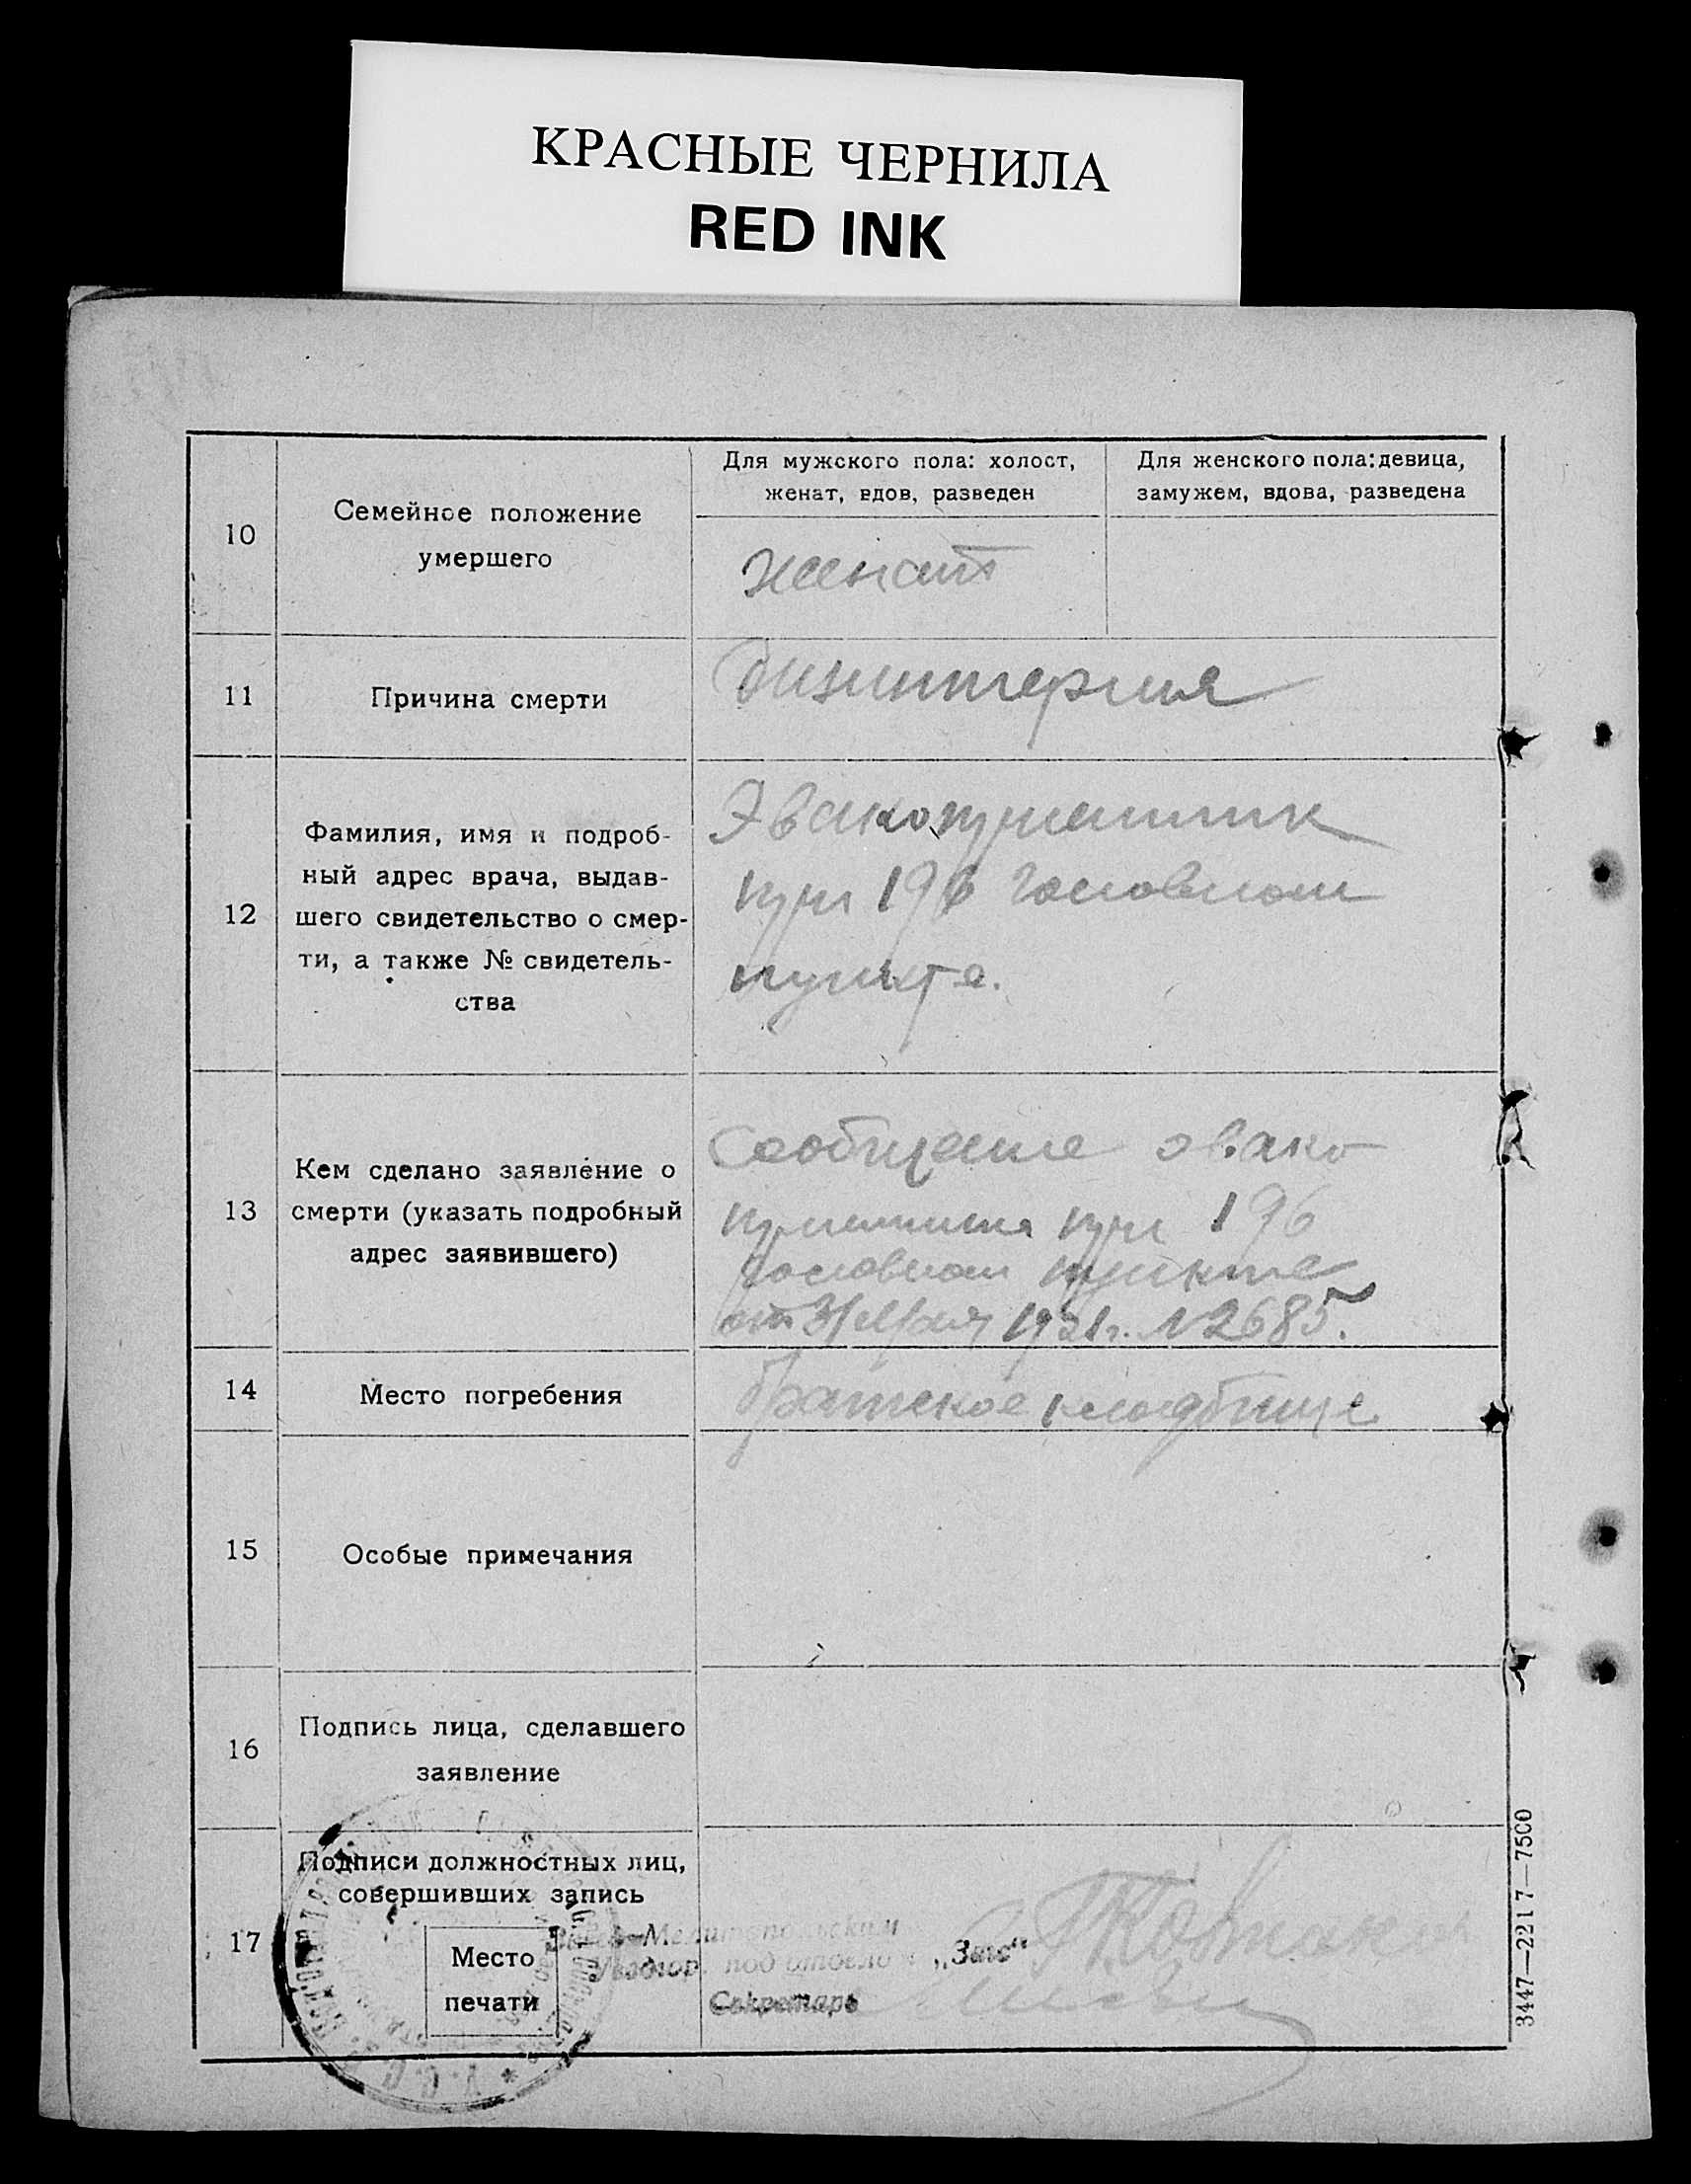 КРАСНЫЕ ЧЕРНИЛА
RED INK
10
Семейное положение
умершего
Для мужского пола: холост,
женат, вдов, разведен
Для женского пола: девица,
замужем, вдова, разведена
женат
11
Причина смерти
Дизинтерия
12
Фамилия, имя и подроб-
ный адрес врача, выдав-
шего свидетельство о смер-
ти, а также № свидетель-
ства
Эвакоприемник
при 196 головном
пункте.
13
Кем сделано заявление о
смерти (указать подробный
адрес заявившего)
Сообщение эвако
приемника при 196
головном пункте
от 31 Мая 1921 г. № 2685.
14
Место погребения
братское кладбище
15
Особые примечания
16
Подпись лица, сделавшего
заявление
17
Подписи должностных лиц,
совершивших запись
Место
печати
Мелитопольским
под отделом „Загс“
Секретарь
3447—2217—7500